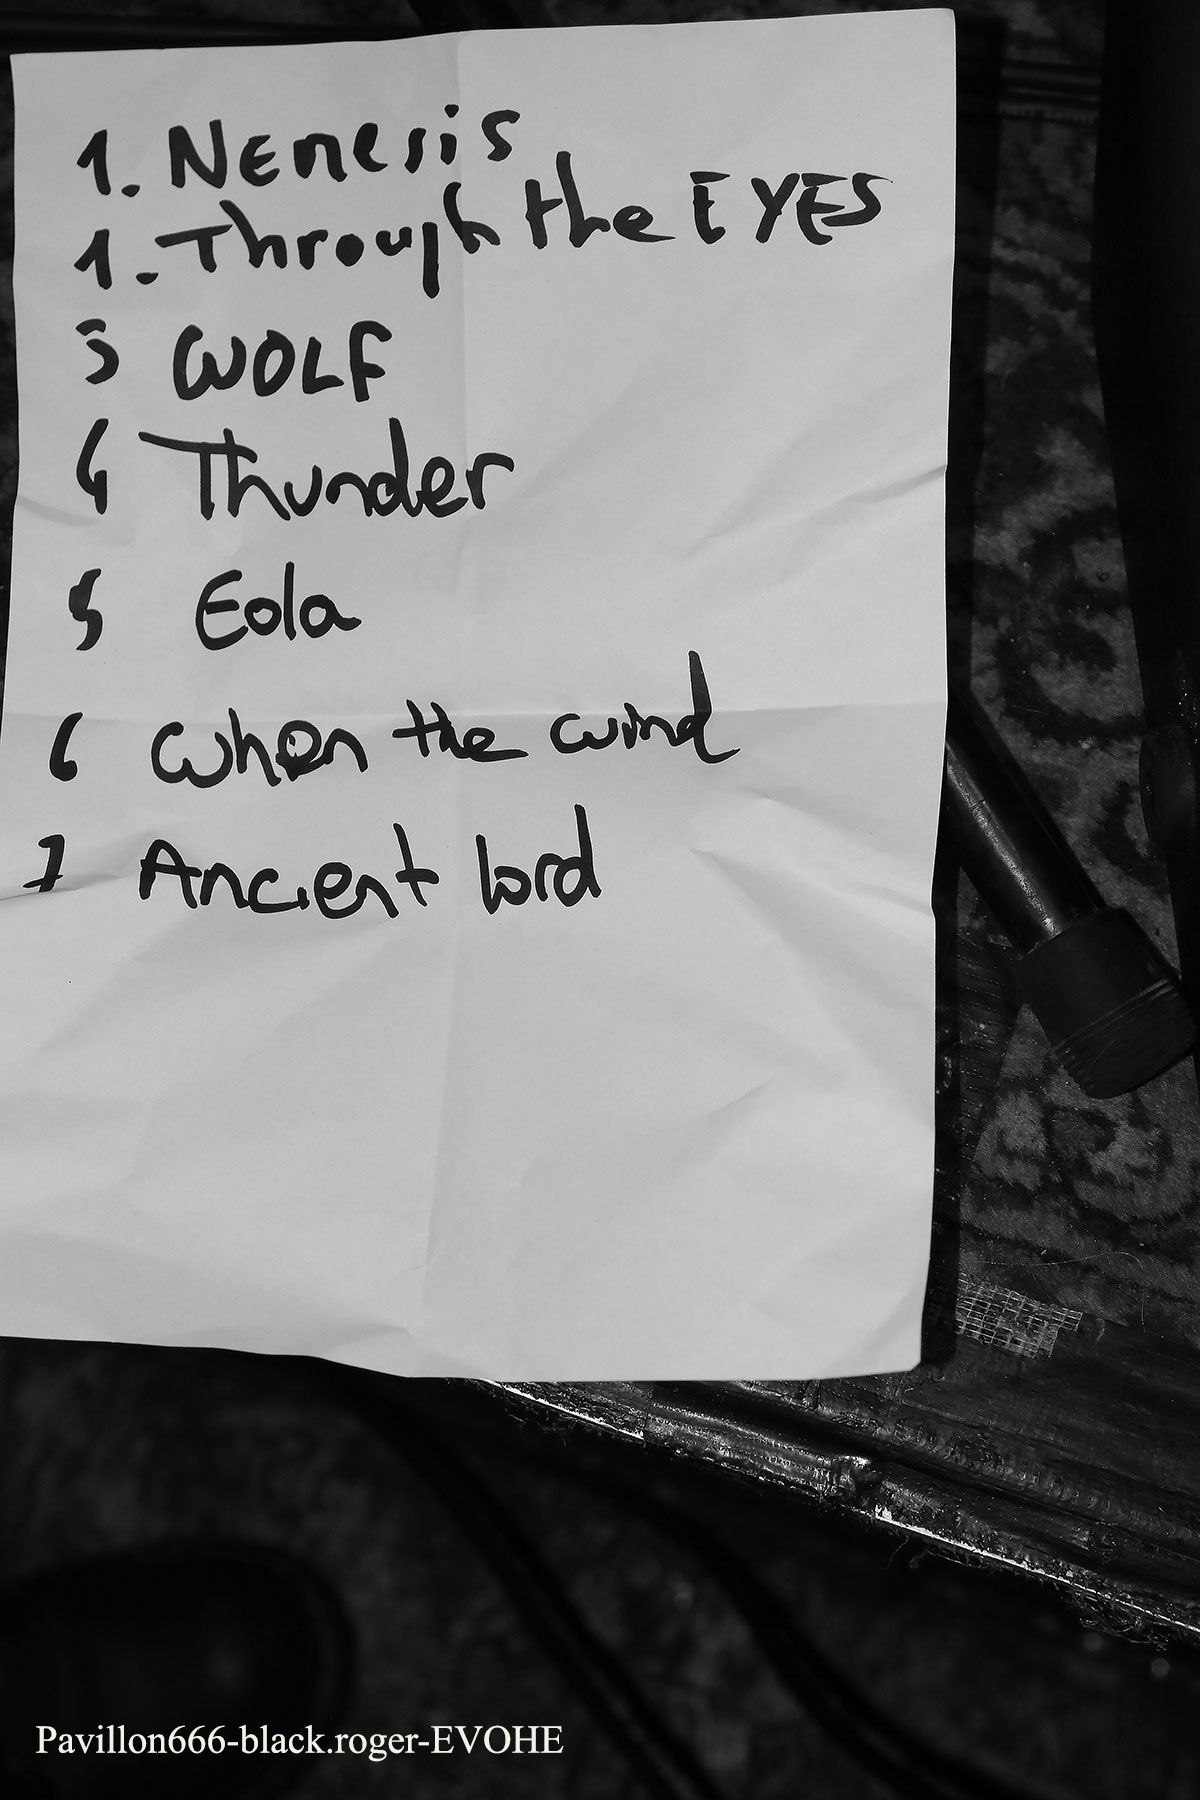 1. Nemesis
1. Through the EYES
3 WOLF
4 Thunder
5 Eola
6 When the wind
7 Ancient lord
Pavillon666-black.roger-EVOHE